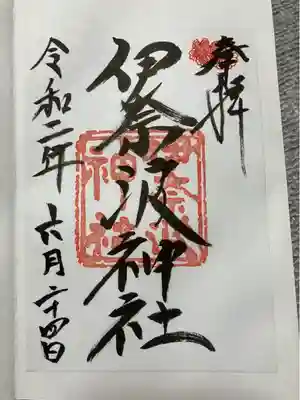 奉拝
伊奈波神社
令和二年
六月二十四日